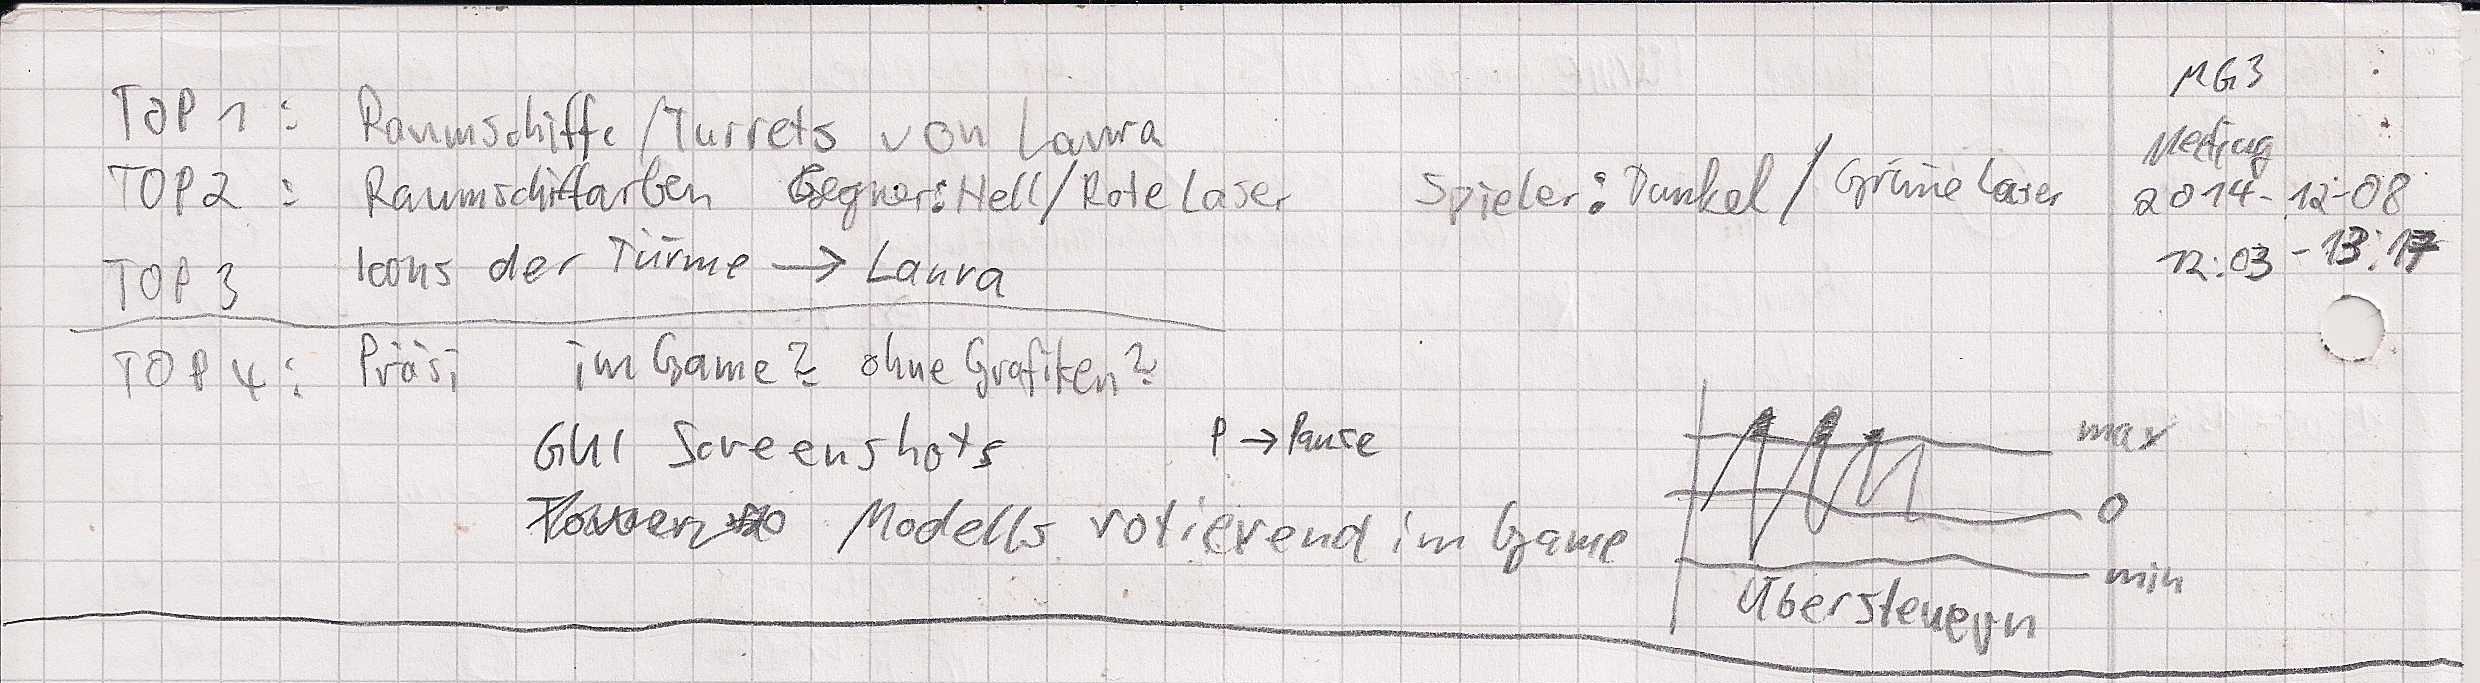 MG3
Meeting
2014-12-08
12:03 - 13:17
TOP 1: Raumschiffe/Turrets von Laura
TOP2: Raumschiffarben Gegner: Hell/Rote Laser Spieler: Dunkel/Grüne Laser
TOP 3 Icons der Türme → Laura
TOP 4: Präsi im Game? ohne Grafiken?
GUI Screenshots P → Pause
Modells rotierend im Game
max
0
min
Übersteuern